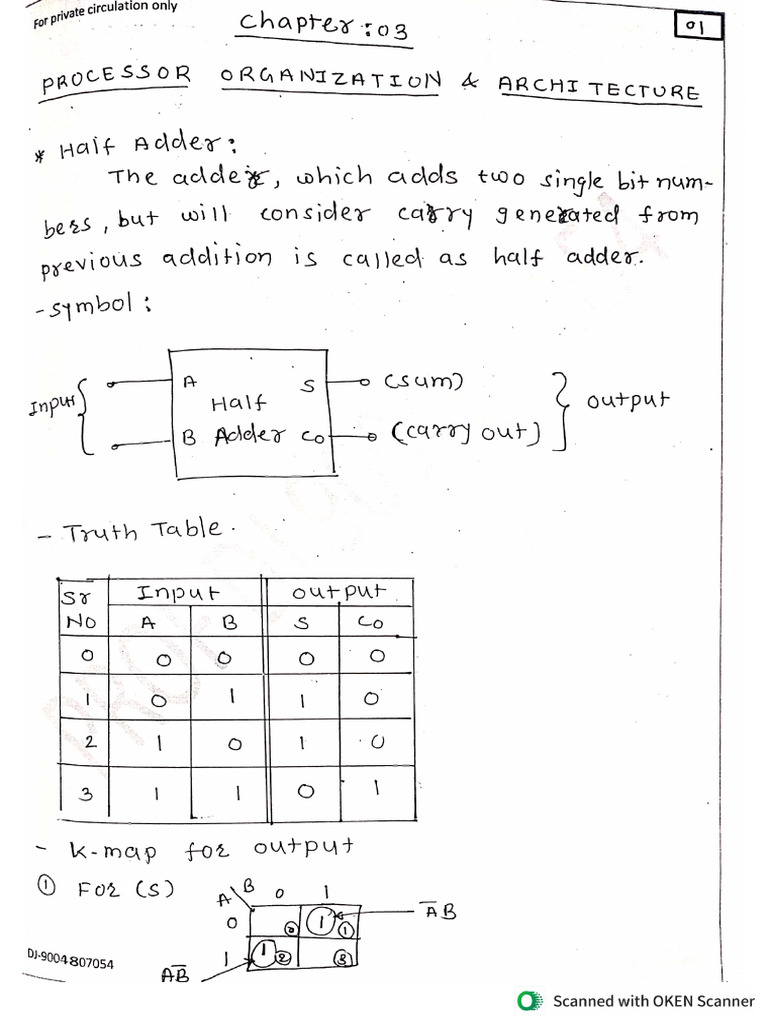 For private circulation only
Chapter:03
01
PROCESSOR ORGANIZATION & ARCHITECTURE
* Half Adder:
The adder, which adds two single bit num-
bers, but will consider carry generated from
previous addition is called as half adder.
- symbol:
Input
A
S
(sum)
Half
Output
B
Adder
Co
(carry out)
- Truth Table.
Sr Input Output
No A B S Co
0 0 0 0 0
1 0 1 1 0
2 1 0 1 0
3 1 1 0 1
- k-map for output
① For (S)
A\B 0 1
0 0 1 1 A̅B
1 1 2 3
AB̅
DJ-9004807054
Scanned with OKEN Scanner